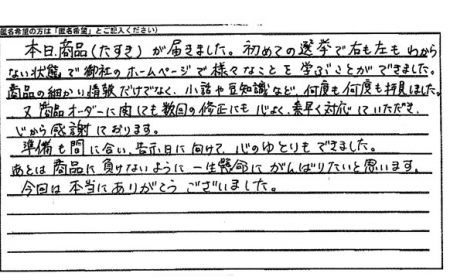 匿名希望の方は「匿名希望」とご記入ください)
本日、商品(たすき)が届きました。初めての選挙で右も左もわから
ない状態で御社のホームページで様々なことを学ぶことができました。
商品の細かい情報だけでなく、小話や豆知識など、何度も何度も拝見しました。
又、商品オーダーに関しても数回の修正にも心よく、素早く対応していただき、
心から感謝しております。
準備も間に合い、告示日に向けて、心のゆとりもできました。
あとは商品に負けないように一生懸命にがんばりたいと思います。
今回は本当にありがとうございました。